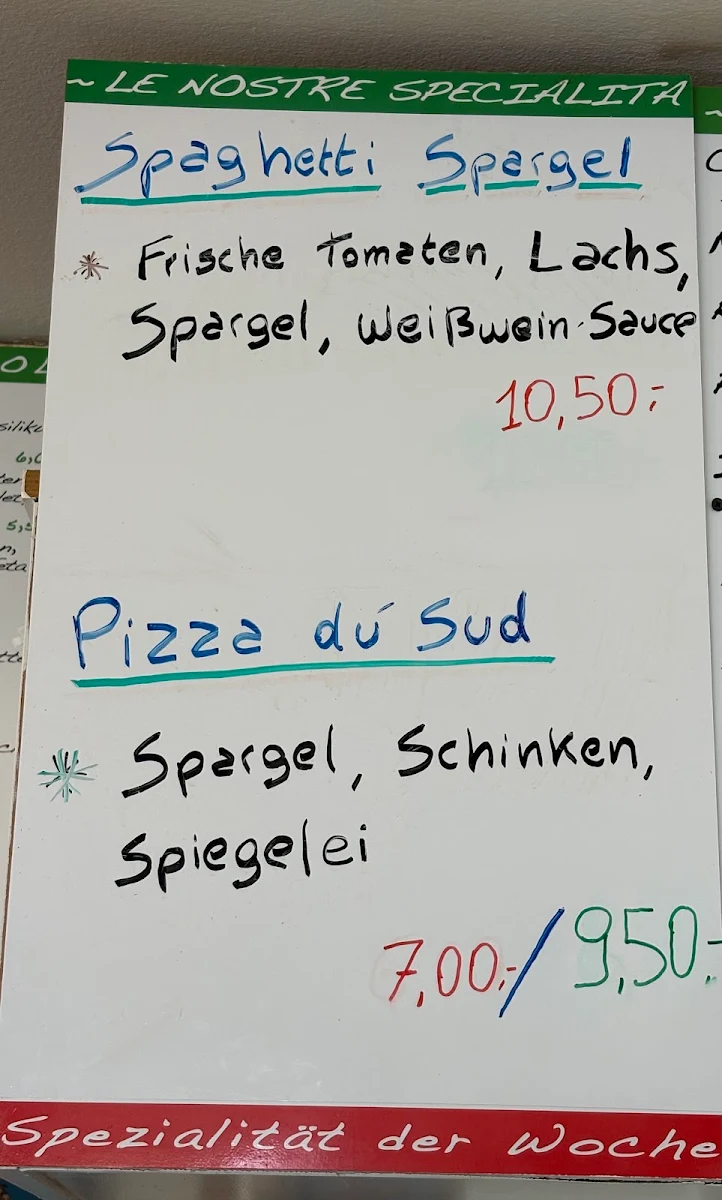 ~ LE NOSTRE SPECIALITA
Spaghetti Spargel
* Frische Tomaten, Lachs,
Spargel, Weißwein-Sauce
10,50.-
Pizza dú Sud
* Spargel, Schinken,
Spiegelei
7,00.-/9,50.-
Spezialität der Woche